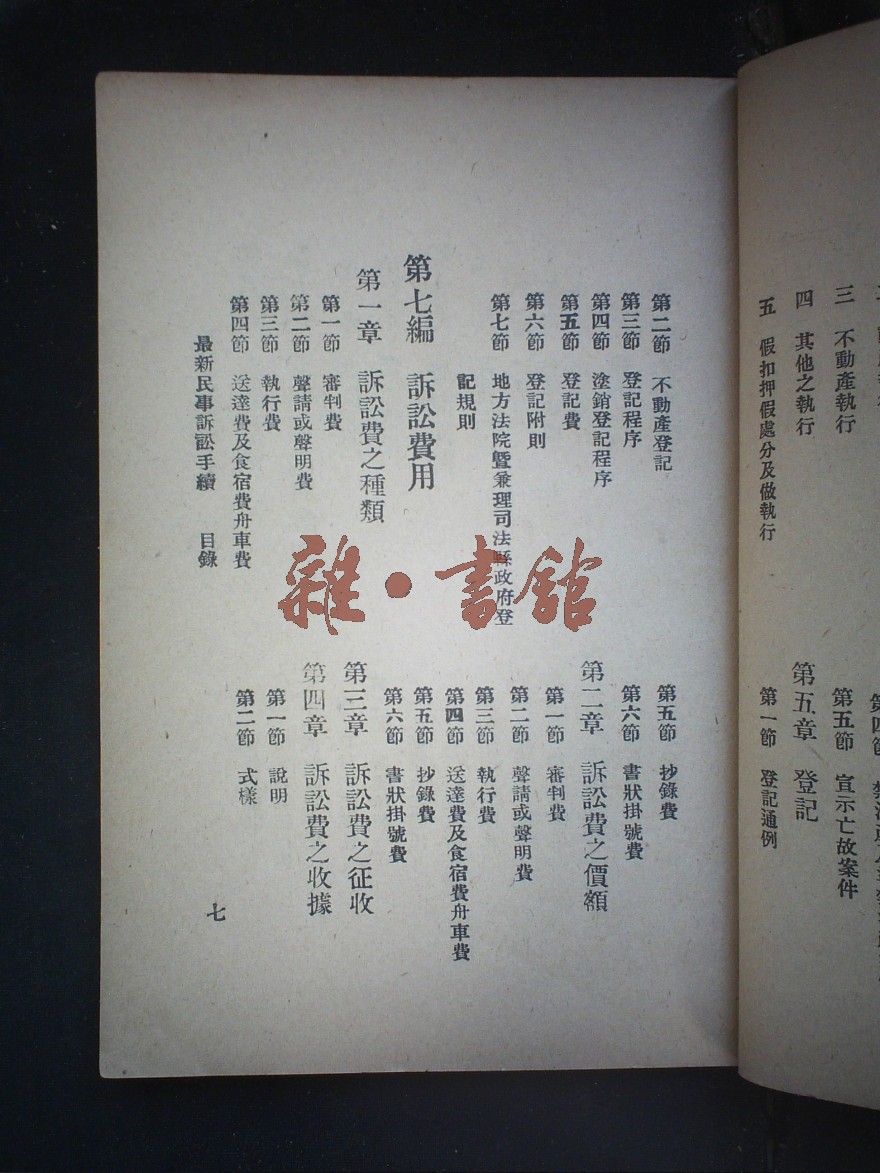 三 不動產執行
四 其他之執行
五 假扣押假處分及做執行
第五節 宣示亡故案件
第五章 登記
第一節 登記通例
第二節 不動產登記
第三節 登記程序
第四節 塗銷登記程序
第五節 登記費
第六節 登記附則
第七節 地方法院暨兼理司法縣政府登
記規則
第七編 訴訟費用
第一章 訴訟費之種類
第一節 審判費
第二節 聲請或聲明費
第三節 執行費
第四節 送達費及食宿費舟車費
第五節 抄錄費
第六節 書狀掛號費
第二章 訴訟費之價額
第一節 審判費
第二節 聲請或聲明費
第三節 執行費
第四節 送達費及食宿費舟車費
第五節 抄錄費
第六節 書狀掛號費
第三章 訴訟費之征收
第四章 訴訟費之收據
第一節 說明
第二節 式樣
最新民事訴訟手續 目錄
七
雜·書館